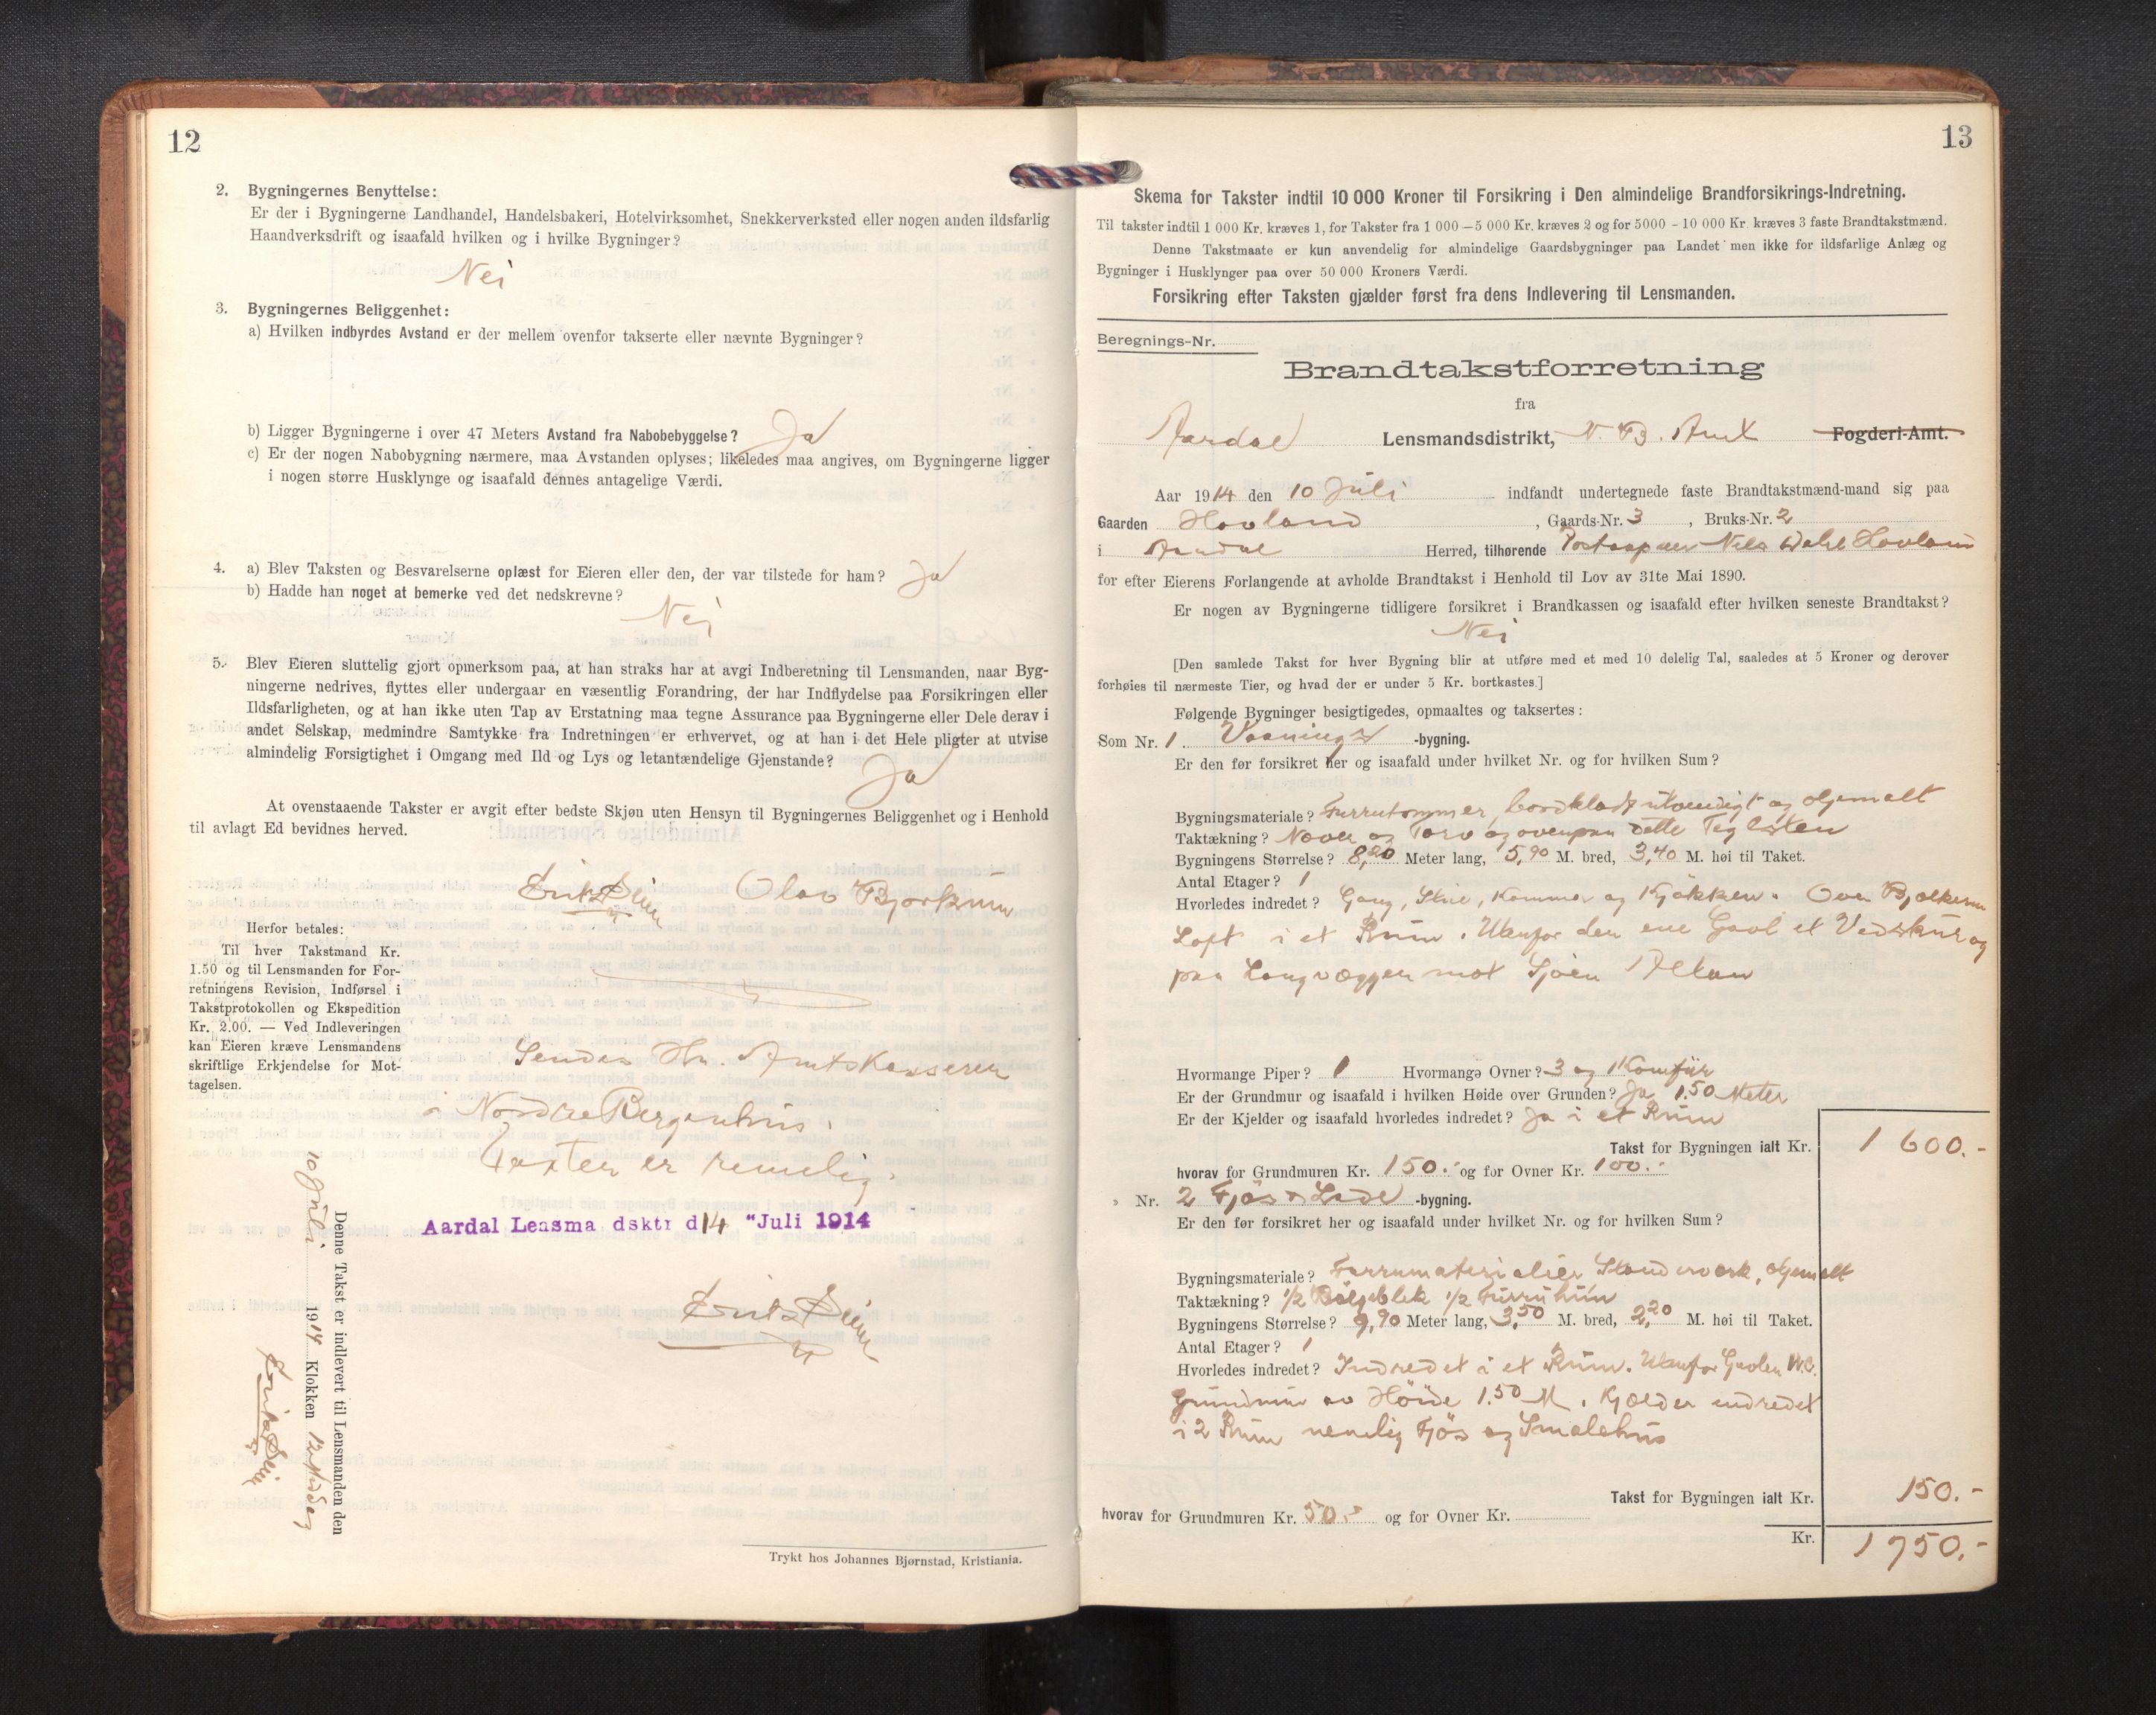 12
2. Bygningernes Benyttelse:
Er der i Bygningerne Landhandel, Handelsbakeri, Hotelvirksomhet, Snekkerverksted eller nogen anden ildsfarlig
Haandverksdrift og isaafald hvilken og i hvilke Bygninger?
Nei
3. Bygningernes Beliggenhet:
a) Hvilken indbyrdes Avstand er der mellem ovenfor takserte eller nævnte Bygninger?
b) Ligger Bygningerne i over 47 Meters Avstand fra Nabobebyggelse? Ja
c) Er der nogen Nabobygning nærmere, maa Avstanden oplyses; likeledes maa angives, om Bygningerne ligger
i nogen større Husklynge og isaafald dennes antagelige Værdi.
4. a) Blev Taksten og Besvarelserne oplæst for Eieren eller den, der var tilstede for ham? Ja
b) Hadde han noget at bemerke ved det nedskrevne?
Nei
5. Blev Eieren sluttelig gjort opmerksom paa, at han straks har at avgi Indberetning til Lensmanden, naar Byg-
ningerne nedrives, flyttes eller undergaar en væsentlig Forandring, der har Indflydelse paa Forsikringen eller
Ildsfarligheten, og at han ikke uten Tap av Erstatning maa tegne Assurance paa Bygningerne eller Dele derav i
andet Selskap, medmindre Samtykke fra Indretningen er erhvervet, og at han i det Hele pligter at utvise
almindelig Forsigtighet i Omgang med Ild og Lys og letantændelige Gjenstande? Ja
At ovenstaaende Takster er avgit efter bedste Skjøn uten Hensyn til Bygningernes Beliggenhet og i Henhold
til avlagt Ed bevidnes herved.
Olav Bjørkum
Herfor betales:
Til hver Takstmand Kr.
1.50 og til Lensmanden for For-
retningens Revision, Indførsel i
Takstprotokollen og Ekspedition
Kr. 2.00. — Ved Indleveringen
kan Eieren kræve Lensmandens
skriftlige Erkjendelse for Mot-
tagelsen.
Sendes Hr. Amtskasserer
i Nordre Bergenhus.
Taxten er rimelig
Aardal Lensma dsktr d 14 "Juli 1914
Denne Takst er indlevert til Lensmanden den
10 Juli 1914 Klokken 12 Middag
Trykt hos Johannes Bjørnstad, Kristiania.
13
Skema for Takster indtil 10 000 Kroner til Forsikring i Den almindelige Brandforsikrings-Indretning.
Til takster indtil 1 000 Kr. kræves 1, for Takster fra 1 000—5 000 Kr. kræves 2 og for 5000 - 10 000 Kr kræves 3 faste Brandtakstmænd.
Denne Takstmaate er kun anvendelig for almindelige Gaardsbygninger paa Landet men ikke for ildsfarlige Anlæg og
Bygninger i Husklynger paa over 50 000 Kroners Værdi.
Forsikring efter Taksten gjælder først fra dens Indlevering til Lensmanden.
Beregnings-Nr.
Brandtakstforretning
fra
Aardal Lensmandsdistrikt, N. B. Amt Fogderi-Amt.
Aar 1914 den 10 Juli indfandt undertegnede faste Brandtakstmænd-mand sig paa
Gaarden Hovland, Gaards-Nr. 3, Bruks-Nr. 2
i Aardal Herred, tilhørende Postaapner Nils Dahl Hovland
for efter Eierens Forlangende at avholde Brandtakst i Henhold til Lov av 31te Mai 1890.
Er nogen av Bygningerne tidligere forsikret i Brandkassen og isaafald efter hvilken seneste Brandtakst?
Nei
[Den samlede Takst for hver Bygning blir at utføre med et med 10 delelig Tal, saaledes at 5 Kroner og derover
forhøies til nærmeste Tier, og hvad der er under 5 Kr. bortkastes.]
Følgende Bygninger besigtigedes, opmaaltes og taksertes:
Som Nr. 1. Vaanings -bygning.
Er den før forsikret her og isaafald under hvilket Nr. og for hvilken Sum?
Bygningsmateriale? Furrutømmer, bordklædt utvendigt og oljemalt
Taktækning? Næver og Torv og ovenpaa dette Teglsten
Bygningens Størrelse? 8,20 Meter lang, 5,90 M. bred, 3,40 M. høi til Taket.
Antal Etager? 1
Hvorledes indredet? Gang, Stue, Kammer og Kjøkken. Over Bjælkerne
Loft i et Rum. Utenfor den ene Gavl et Vedskur og
paa Langvæggen mot Sjøen Altan
Hvormange Piper? 1 Hvormange Ovner? 3 og 1 Komfür
Er der Grundmur og isaafald i hvilken Høide over Grunden? Ja 1.50 Meter
Er der Kjelder og isaafald hvorledes indredet? Ja i et Rum
Takst for Bygningen ialt Kr. 1 600.-
hvorav for Grundmuren Kr. 150.- og for Ovner Kr. 100.-
» Nr. 2 Fjøs & Lade -bygning.
Er den før forsikret her og isaafald under hvilket Nr. og for hvilken Sum?
Bygningsmateriale? Furrumaterialier Standverk, oljemalt
Taktækning? 1/2 Bølgeblek 1/2 Furruhun
Bygningens Størrelse? 9,90 Meter lang, 3,50 M. bred, 2,20 M. høi til Taket.
Antal Etager? 1
Hvorledes indredet? Indredet i et Rum. Utenfor Gavlen W.C.
Grundmur av Høide 1.50 M. Kjelder indredet
i 2 Rum nemlig Fjøs og Smalehus
Takst for Bygningen ialt Kr. 150.-
hvorav for Grundmuren Kr. 50.- og for Ovner Kr.
Kr. 1 750.-